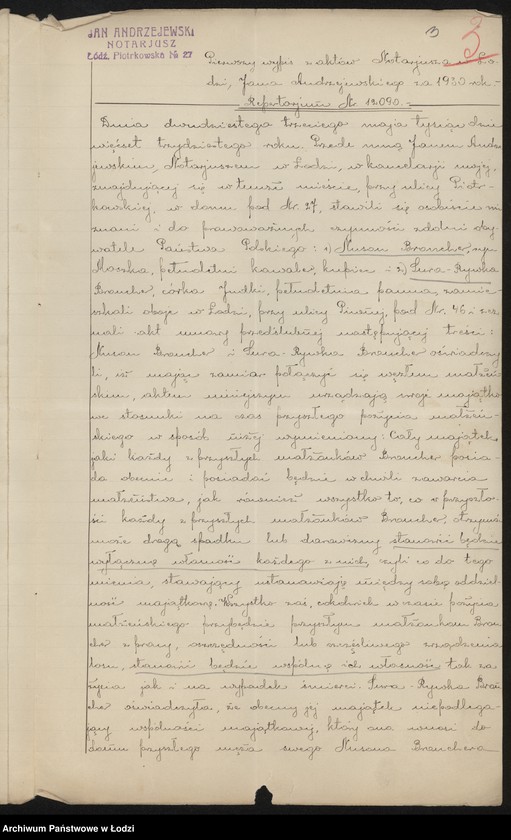 JAN ANDRZEJEWSKI
NOTARJUSZ
Łódź, Piotrkowska № 27
3
3
Pierwszy wypis z aktów Notarjusza w Ło-
dzi, Jana Andrzejewskiego za 1930 rok-
Repertorjum Nr. 12090.-
Dnia dwudziestego trzeciego maja tysiąc dzie-
więćset trzydziestego roku. Przede mną Janem Andrze-
jewskim, Notarjuszem w Łodzi, w kancelarji mojej,
znajdującej się w temże mieście, przy ulicy Piotr-
kowskiej, w domu pod Nr. 27, stawili się osobiście
znani i do prawoważnych czynności zdolni oby-
watele Państwa Polskiego: 1) Nusan Braucher, syn
Moszka, pełnoletni kawaler, kupiec i 2) Sura-Rywka
Braucher, córka Judki, pełnoletnia panna, zamie-
szkali oboje w Łodzi, przy ulicy Pusznej, pod Nr. 46 i zez-
nali akt umowy przedślubnej następującej treści:
Nusan Braucher i Sura-Rywka Braucher oświadczy-
li, iż mając zamiar połączyć się węzłem małżeń-
skim, aktem niniejszym urządzają swoje majątko-
we stosunki na czas przyszłego pożycia małżeń-
skiego w sposób niżej wymieniony: Cały majątek,
jaki każdy z przyszłych małżonków Braucher posia-
da obecnie i posiadać będzie w chwili zawarcia
małżeństwa, jak również wszystko to, co w przyszło-
ści każdy z przyszłych małżonków Braucher, otrzymać
może drogą spadku lub darowizny stanowić będzie
wyłączną własność każdego z nich, czyli co do tego
mienia, stawający ustanawiają między sobą oddziel-
ność majątkową. Wszystko zaś, cokolwiek w czasie pożycia
małżeńskiego przybędzie przyszłym małżonkom Brau-
cher z pracy, oszczędności lub szczęśliwego zrządzenia
losu, stanowić będzie wspólną ich własność, tak za
życia jak i na wypadek śmierci. Sura-Rywka Brau-
cher oświadczyła, że obecny jej majątek niepodlega-
jący wspólności majątkowej, który ona wnosi do
domu przyszłego męża swego Nusana Brauchera
Archiwum Państwowe w Łodzi